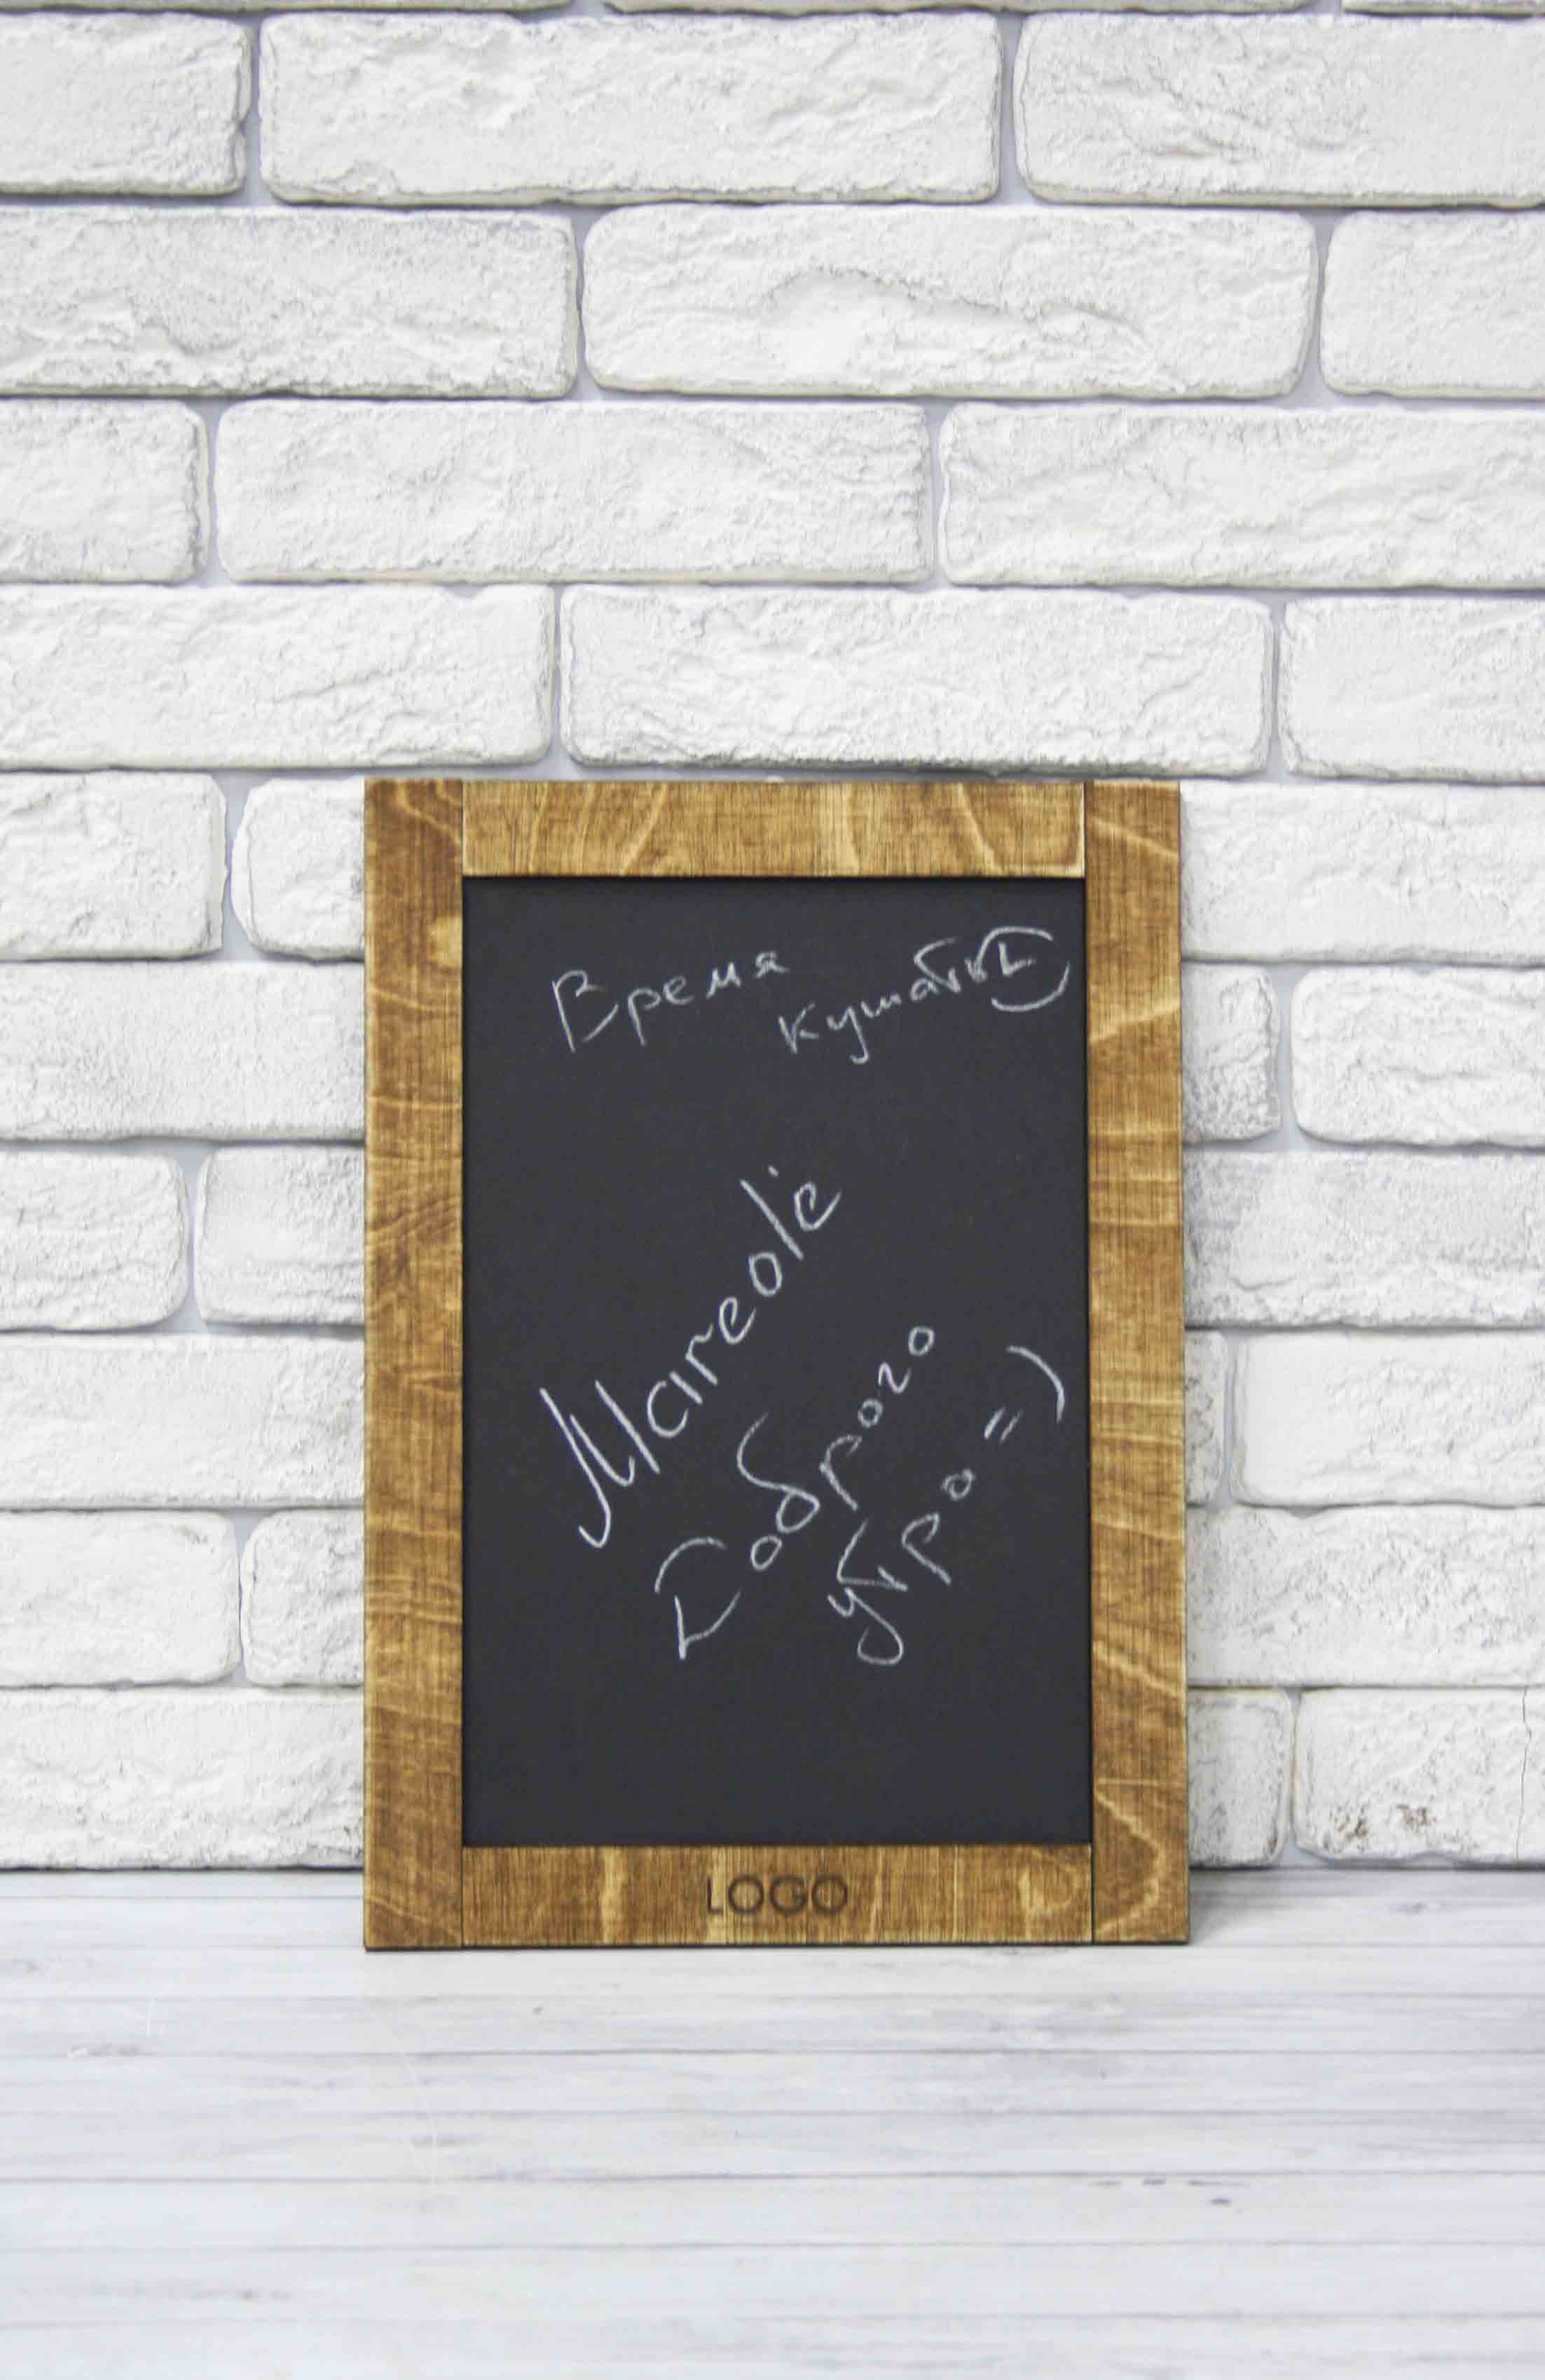 Время
кушать
Mareole
Доброго
утро =)
LOGO